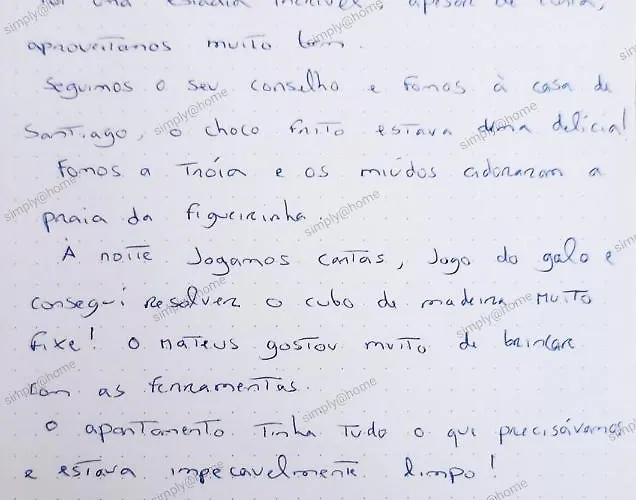 foi uma estadia incrível, apesar de curta,
aproveitamos muito bem.
Seguimos o seu conselho e fomos à casa de
Santiago, o choco frito estava duma delicia!
Fomos a Tróia e os miúdos adoraram a
praia da figueirinha.
À noite jogamos cartas, Jogo do galo e
consegui resolver o cubo de madeira. Muito
fixe! O Mateus gostou muito de brincar
com as ferramentas.
O apartamento tinha tudo o que precisávamos
e estava impecavelmente limpo!
simply@home